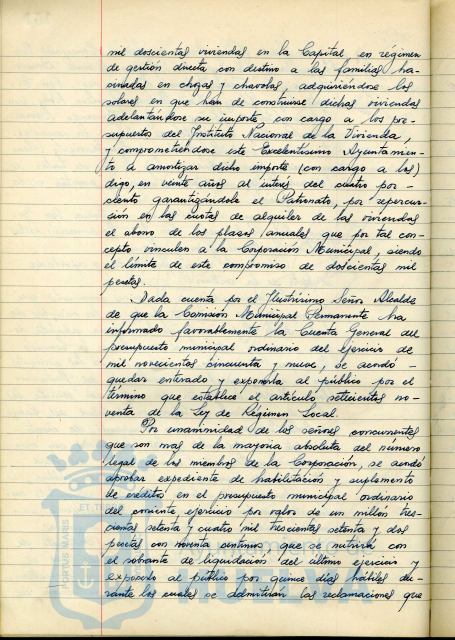 mil doscientas viviendas en la Capital, en régimen
de gestión directa con destino a las familias ha-
cinadas en chozas y chavolas, adquiriéndose los
solares en que han de construirse dichas viviendas
adelantándose su importe con cargo a los pre-
supuestos del Instituto Nacional de la Vivienda,
y comprometiéndose este Excelentísimo Ayuntamien-
to a amortizar dicho importe (con cargo a los)
digo, en veinte años al interés del cuatro por
ciento garantizándole el Patronato, por repercu-
sión en las cuotas de alquiler de las viviendas
el abono de los plazos anuales que por tal con-
cepto vinculen a la Corporación Municipal, siendo
el límite de este compromiso de doscientas mil
pesetas.
Dada cuenta por el Ilustrísimo Señor Alcalde
de que la Comisión Municipal Permanente ha
informado favorablemente la Cuenta General del
presupuesto municipal ordinario del ejercicio de
mil novecientos cincuenta y nueve, se acordó -
quedar enterado y exponerla al público por el
término que establece el artículo setecientos no-
venta de la Ley de Régimen Local.
Por unanimidad de los señores concurrentes
que son mas de la mayoría absoluta del número
legal de los miembros de la Corporación, se acordó
aprobar expediente de habilitación y suplemento
de créditos en el presupuesto municipal ordinario
del corriente ejercicio por valor de un millón tres-
cientas setenta y cuatro mil trescientas setenta y dos
pesetas con noventa centimos, que se nutrirá con
el sobrante de liquidación del último ejercicio y
exponerlo al público por quince días hábiles du-
rante los cuales se admitirán las reclamaciones que
PORTUS MARIS
ET T